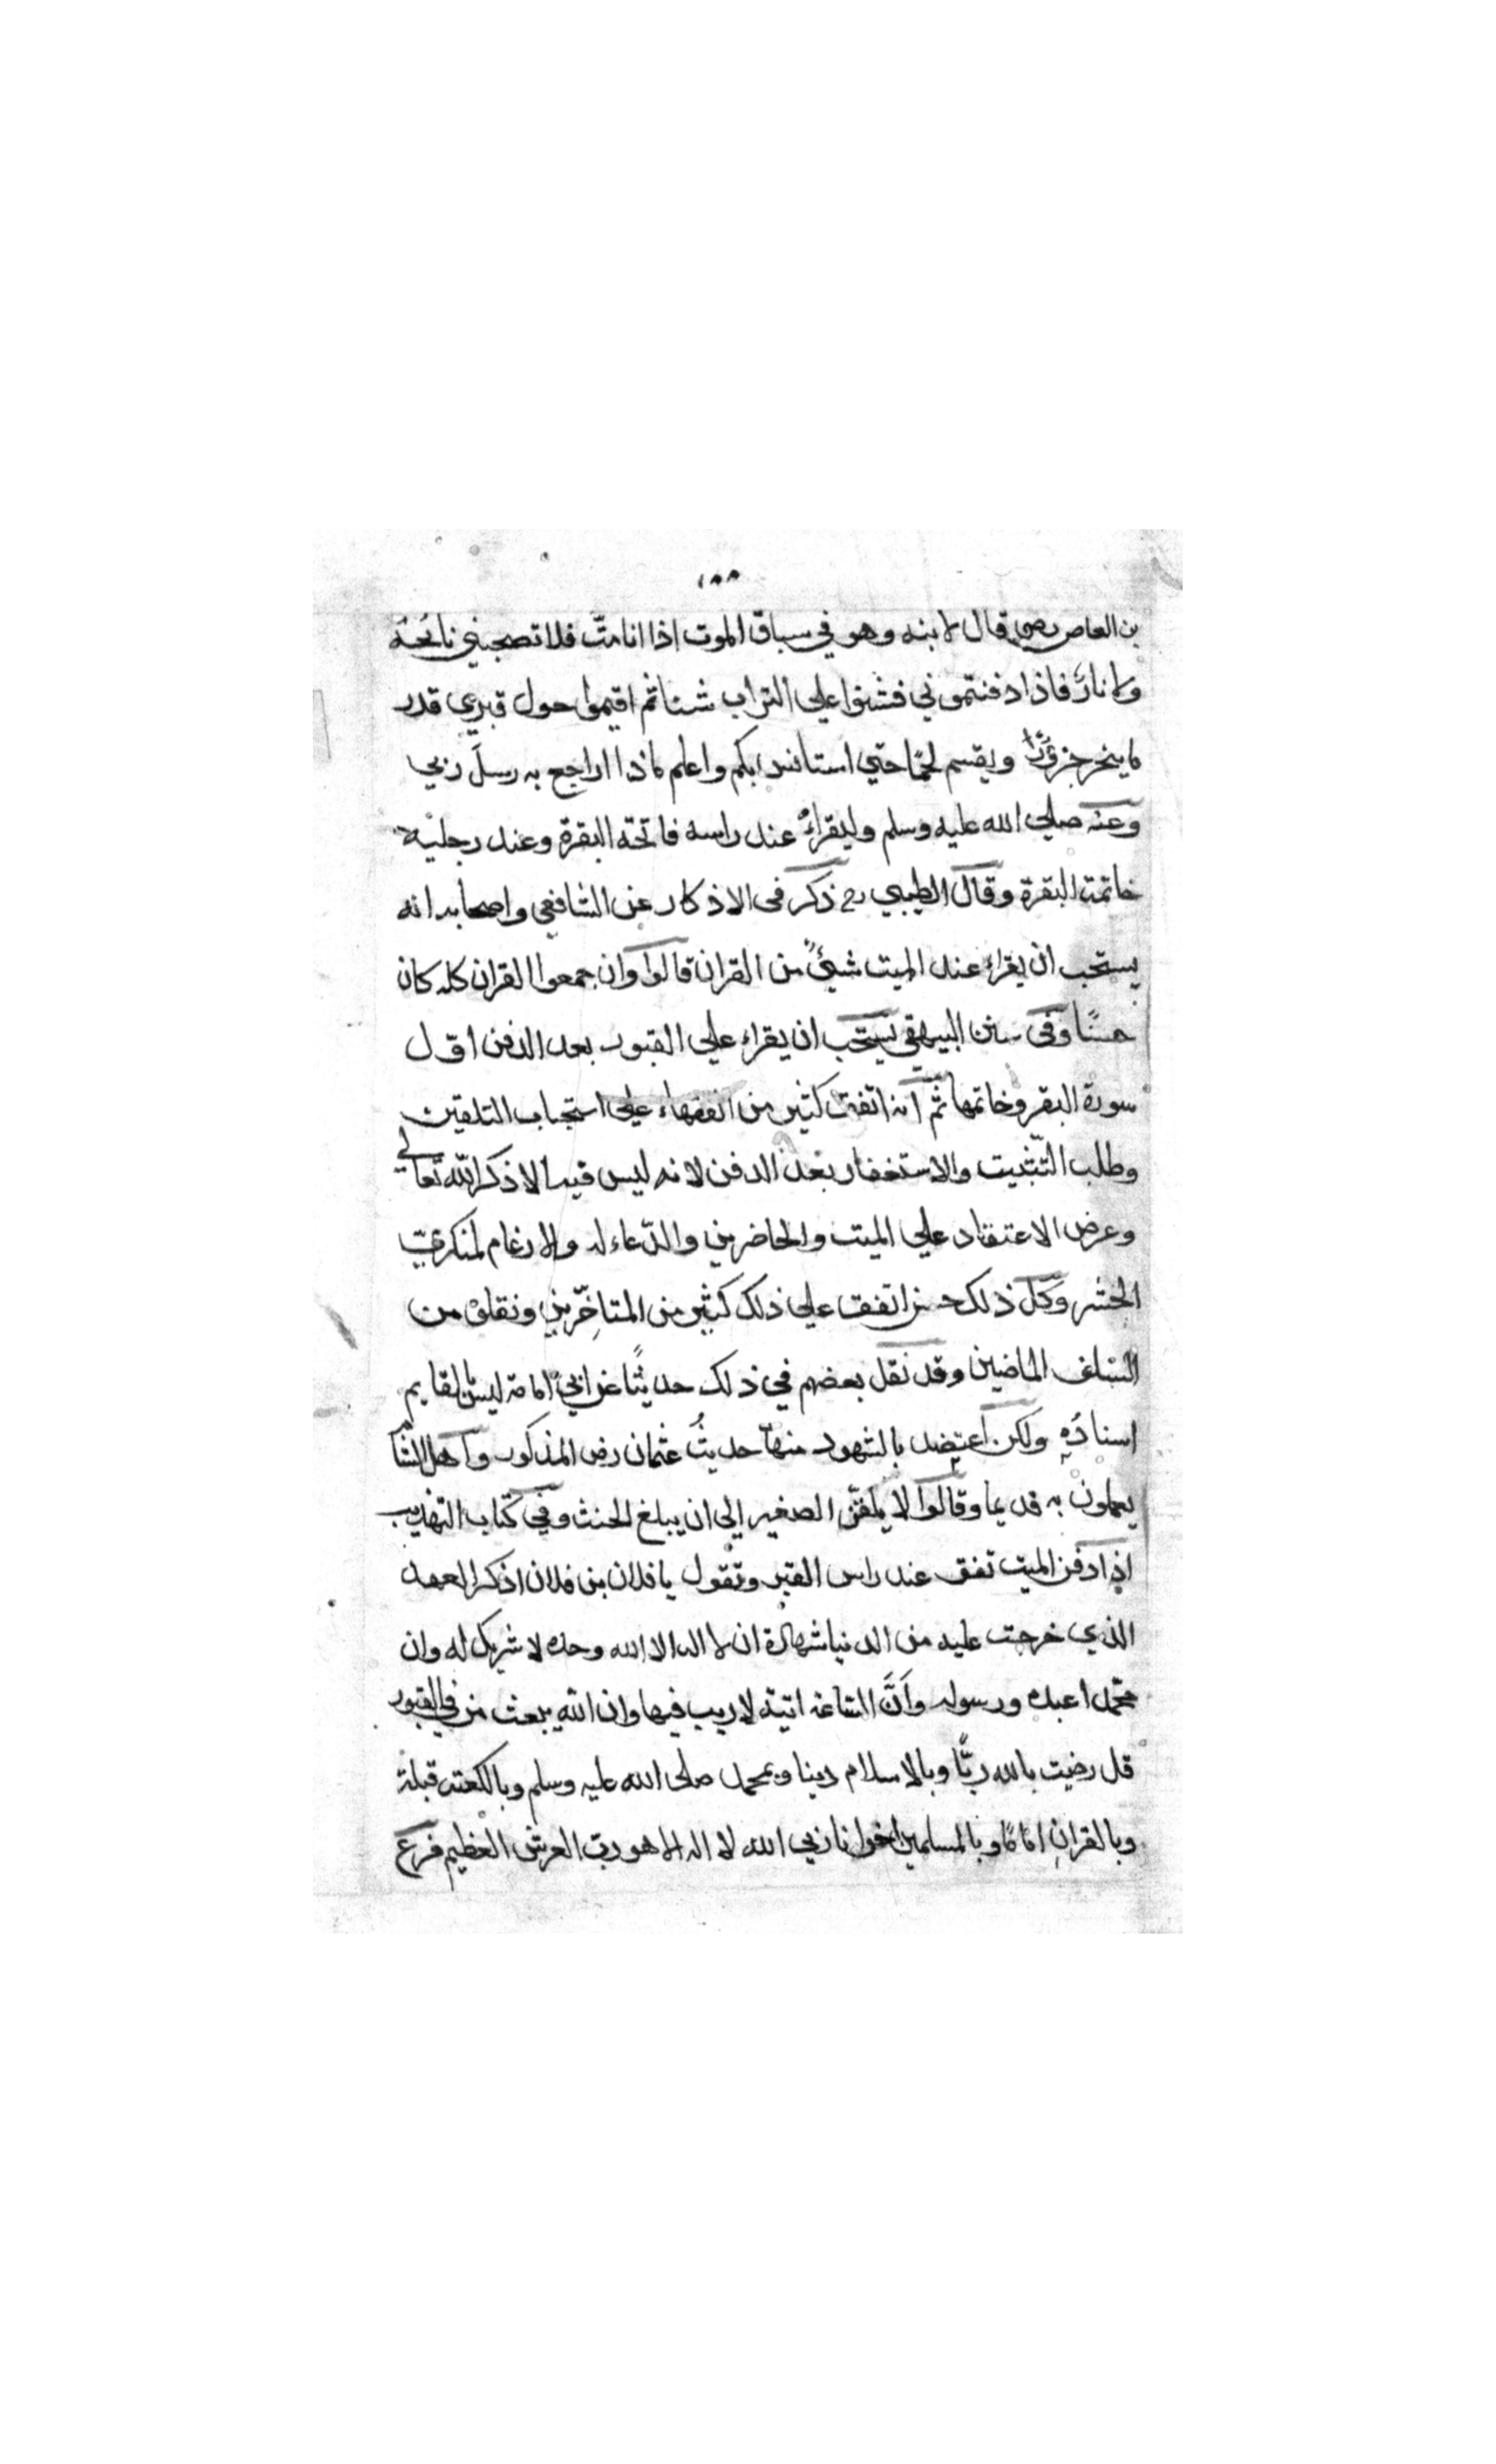 بن العاص رضي قال لابنه وهو في سياق الموت اذا انا متّ فلا تصحبني نائحة
ولا نارٌ فاذا دفنتموني فشنوا علي التراب شنا ثم اقيموا حول قبري قدر
ما ينحر جزورٌ ويقسم لحمًا حتي استانس بكم واعلم ماذا اراجع به رسلَ ربي
وعنه صلي الله عليه وسلم وليقراءُ عند راسه فاتحة البقرة وعند رجليه
خاتمة البقرة وقال الطيبي رح ذكر في الاذكار عن الشافعي واصحابه انه
يستحب ان يقراء عند الميت شيئً من القران قالوا وان جمعوا القران كله كان
حسنًا وفي سنن البيهقي يستحب ان يقراء علي القبور بعد الدفن اول
سورة البقر وخاتمها ثم انه اتفق كثير من الفقهاء علي استحباب التلقين
وطلب التّثبيت والاستغفار بعد الدفن لانه ليس فيه الا ذكر الله تعالي
وعرض الاعتقاد علي الميت والحاضرين والدّعاء له والارغام لمنكري
الحشر وكل ذلك حسن اتفق علي ذلك كثير من المتاخّرين ونقلوْ من
السّلف الماضين وقد نقل بعضهم في ذلك حديثًا عن ابي امامة ليس بالقايم
اسنادُهِ ولكن اعتضد بالشهود منها حديثُ عثمان رض المذكور واهل الشّا
يعملون به قديما وقالوا لا يلقّن الصغير الي ان يبلغ الحنث وفي كتاب التهذيب
اذا دفن الميت تفق عند راس القبر وتقول يا فلان بن فلان اذكر العهد
الذي خرجت عليه من الدنيا شهادة ان لا اله الا الله وحده لا شريك له وان
محمّدا عبده ورسوله وانَّ السّاعة اتية لا ريب فيها وان الله يبعث من في القبور
قل رضيت بالله ربًّا وبالاسلام دينا وبمحمد صلي الله عليه وسلم وبالكعبة قبلة
وبالقران امامًا وبالمسلمين اخوانا ربي الله لا اله الا هو رب العرش العظيم فرع